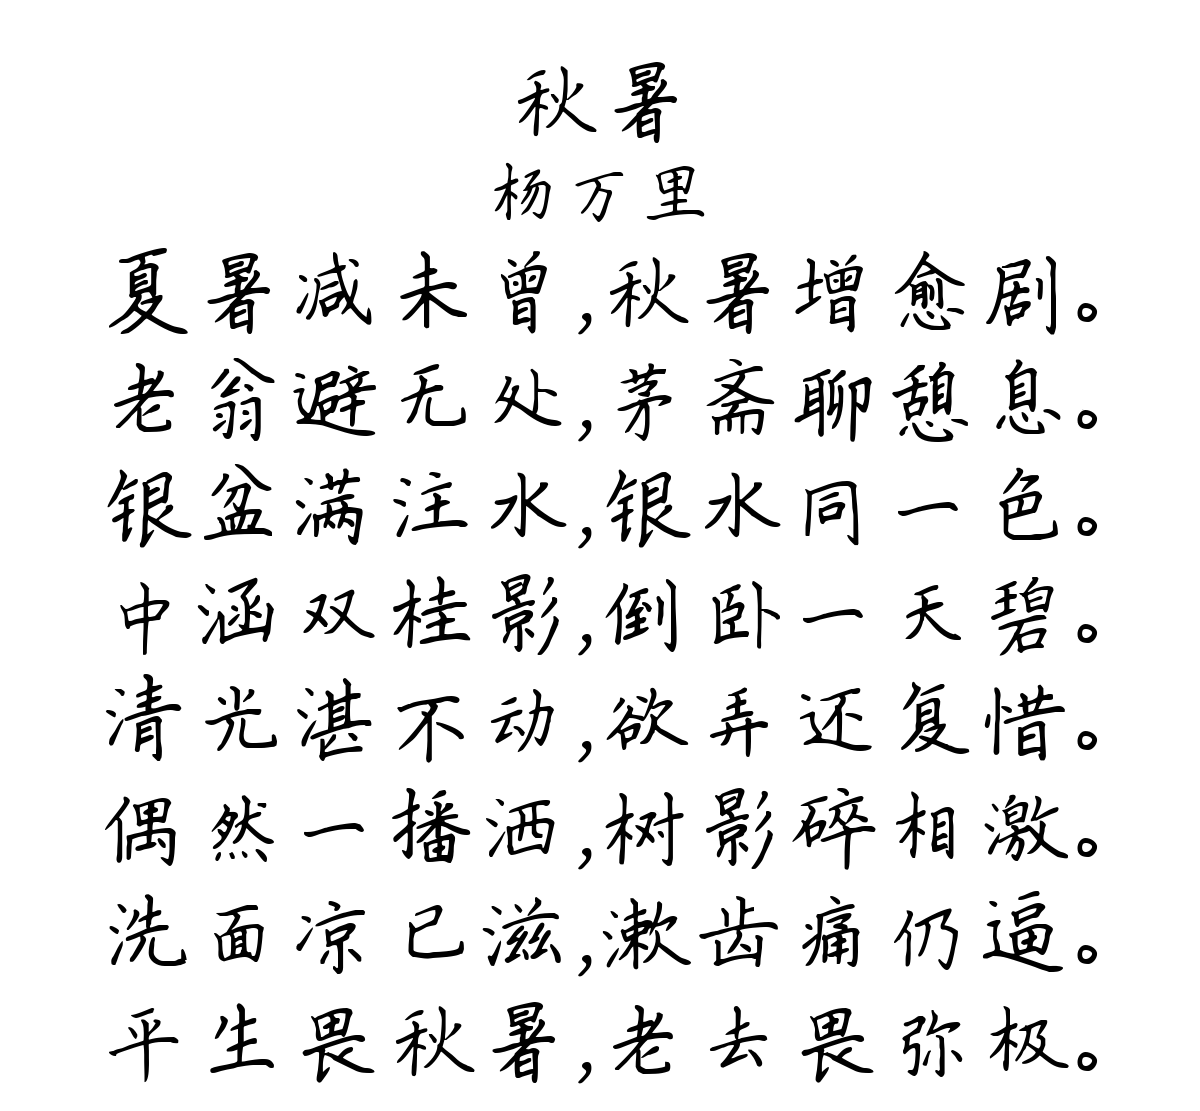 秋暑
杨万里
夏暑减未曾,秋暑增愈剧。
老翁避无处,茅斋聊憩息。
银盆满注水,银水同一色。
中涵双桂影,倒卧一天碧。
清光湛不动,欲弄还复惜。
偶然一播洒,树影碎相激。
洗面凉已滋,漱齿痛仍逼。
平生畏秋暑,老去畏弥极。